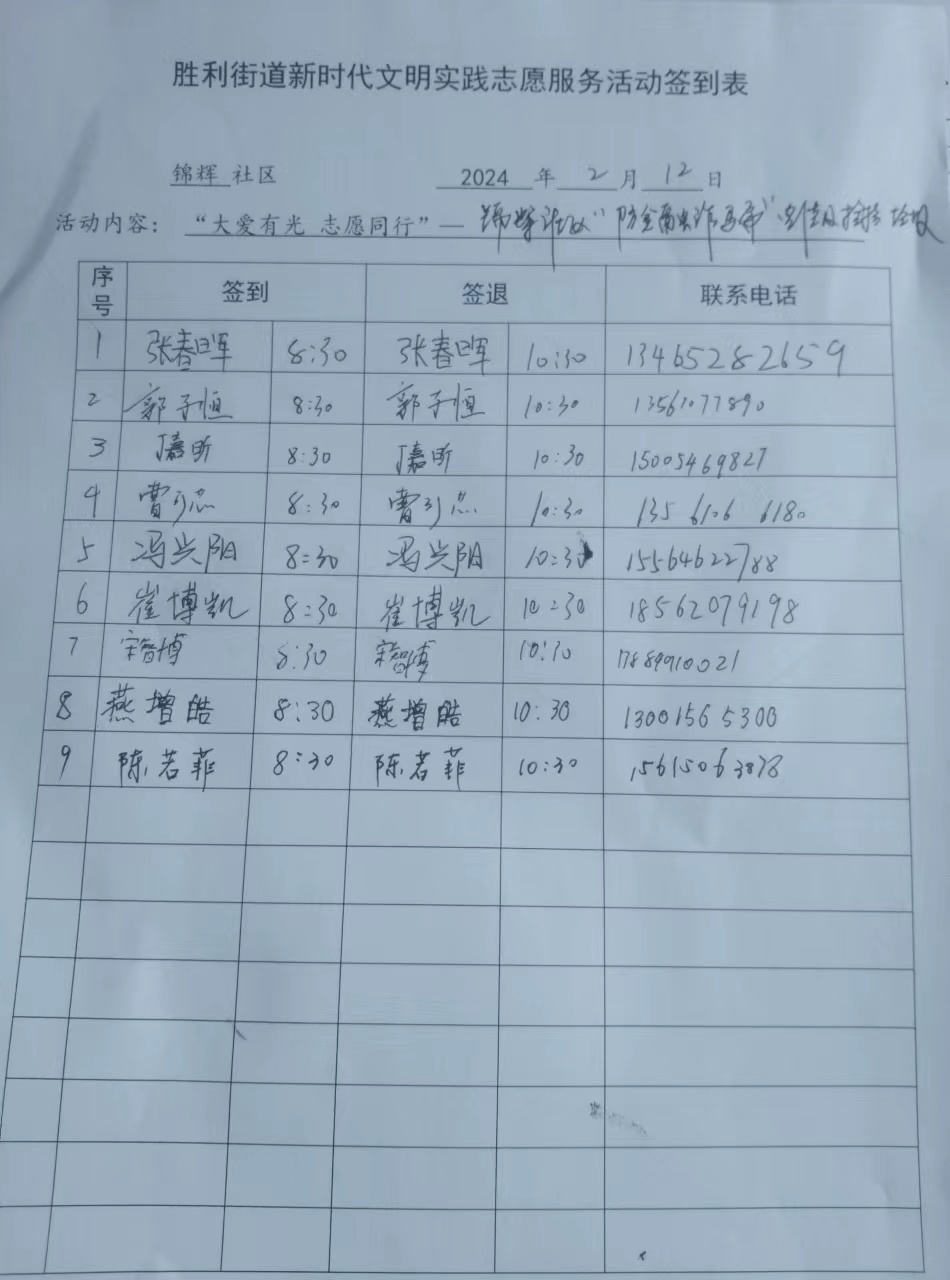 胜利街道新时代文明实践志愿服务活动签到表
锦辉 社区 2024 年 2 月 12 日
活动内容： “大爱有光 志愿同行”— 锦辉社区“防金融诈骗 垃圾
序号 签到 签退 联系电话
1 张春晖 8:30 张春晖 10:30 13465282659
2 郭子恒 8:30 郭子恒 10:30 13561077890
3 丁嘉昕 8:30 丁嘉昕 10:30 15005469827
4 曹 8:30 曹 10:30 135 6106 6180
5 冯兴阳 8:30 冯兴阳 10:30 15564622788
6 崔博凯 8:30 崔博凯 10:30 18562079198
7 宋智博 8:30 宋智博 10:30 17889910021
8 燕增皓 8:30 燕增皓 10:30 13001565300
9 陈若菲 8:30 陈若菲 10:30 15615063878